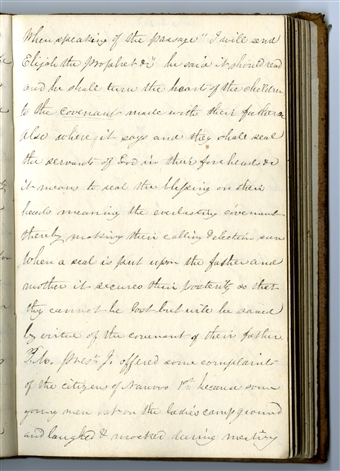 When speaking of the passage "I will send
Elijah the Prophet &c" he said it should read
and he shall turn the heart of the children
to the covenant made with their fathers
also where it says and they shall seal
the servants of God in their foreheads &c
it means to seal the blessing on their
heads meaning the everlasting covenant
thereby making their calling & election sure
When a seal is put upon the father and
mother it secures their posterity so that
they cannot be lost but will be saved
by virtue of the covenant of their father
P.M. Prest J. offered some complaints
of the citizens of Nauvoo because some
young men sat on the ladies camp ground
and laughed & mocked during meeting